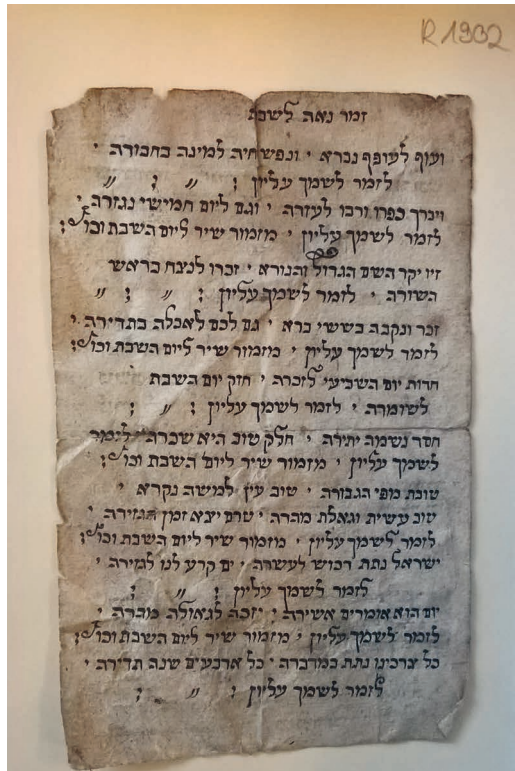 R 1902
זמר נאה לשבת
ועוף לעופף נברא ׳ ונפש חיה למינה בחבורה ׳
לזמר לשמך עליון ; ״ ; ״
ויברך כפרו ורבו לעזרה ׳ וגם ליום חמישי נגזרה ׳
לזמר לשמך עליון ׳ מזמור שיר ליום השבת וכו׳ ;
זיו יקר השם הגדול והנורא ׳ זכרו לנצח בראש
השורה ׳ לזמר לשמך עליון ; ״ ; ״
זכר ונקבה בששי ברא ׳ גם לכם לאכלה בתדירה ׳
לזמר לשמך עליון ׳ מזמור שיר ליום השבת וכו׳ ;
חדות יום השביעי לזכרה ׳ חזק יום השבת
לשומרה ׳ לזמר לשמך עליון ; ״ ;
חסד נשמה יתירה ׳ חלק טוב היא שכרה לזמר
לשמך עליון ׳ מזמור שיר ליום השבת וכו׳ ;
טובת מפי הגבורה ׳ טוב עין למשה נקרא ׳
טוב עשית וגאלת מהרה ׳ טרם יצא זמן הגזירה ׳
לזמר לשמך עליון ׳ מזמור שיר ליום השבת וכו׳ ;
ישראל נתת רכוש לעשרה ׳ ים קרע לנו לגזירה ׳
לזמר לשמך עליון ; ״ ;
יום הוא אומרים אשירה ; יזכה לגאולה מוברה ׳
לזמר לשמך עליון ׳ מזמור שיר ליום השבת וכו׳ ;
כל צרכינו נתת במדברה ׳ כל ארבעים שנה תדירה ׳
לזמר לשמך עליון ; ״ ;